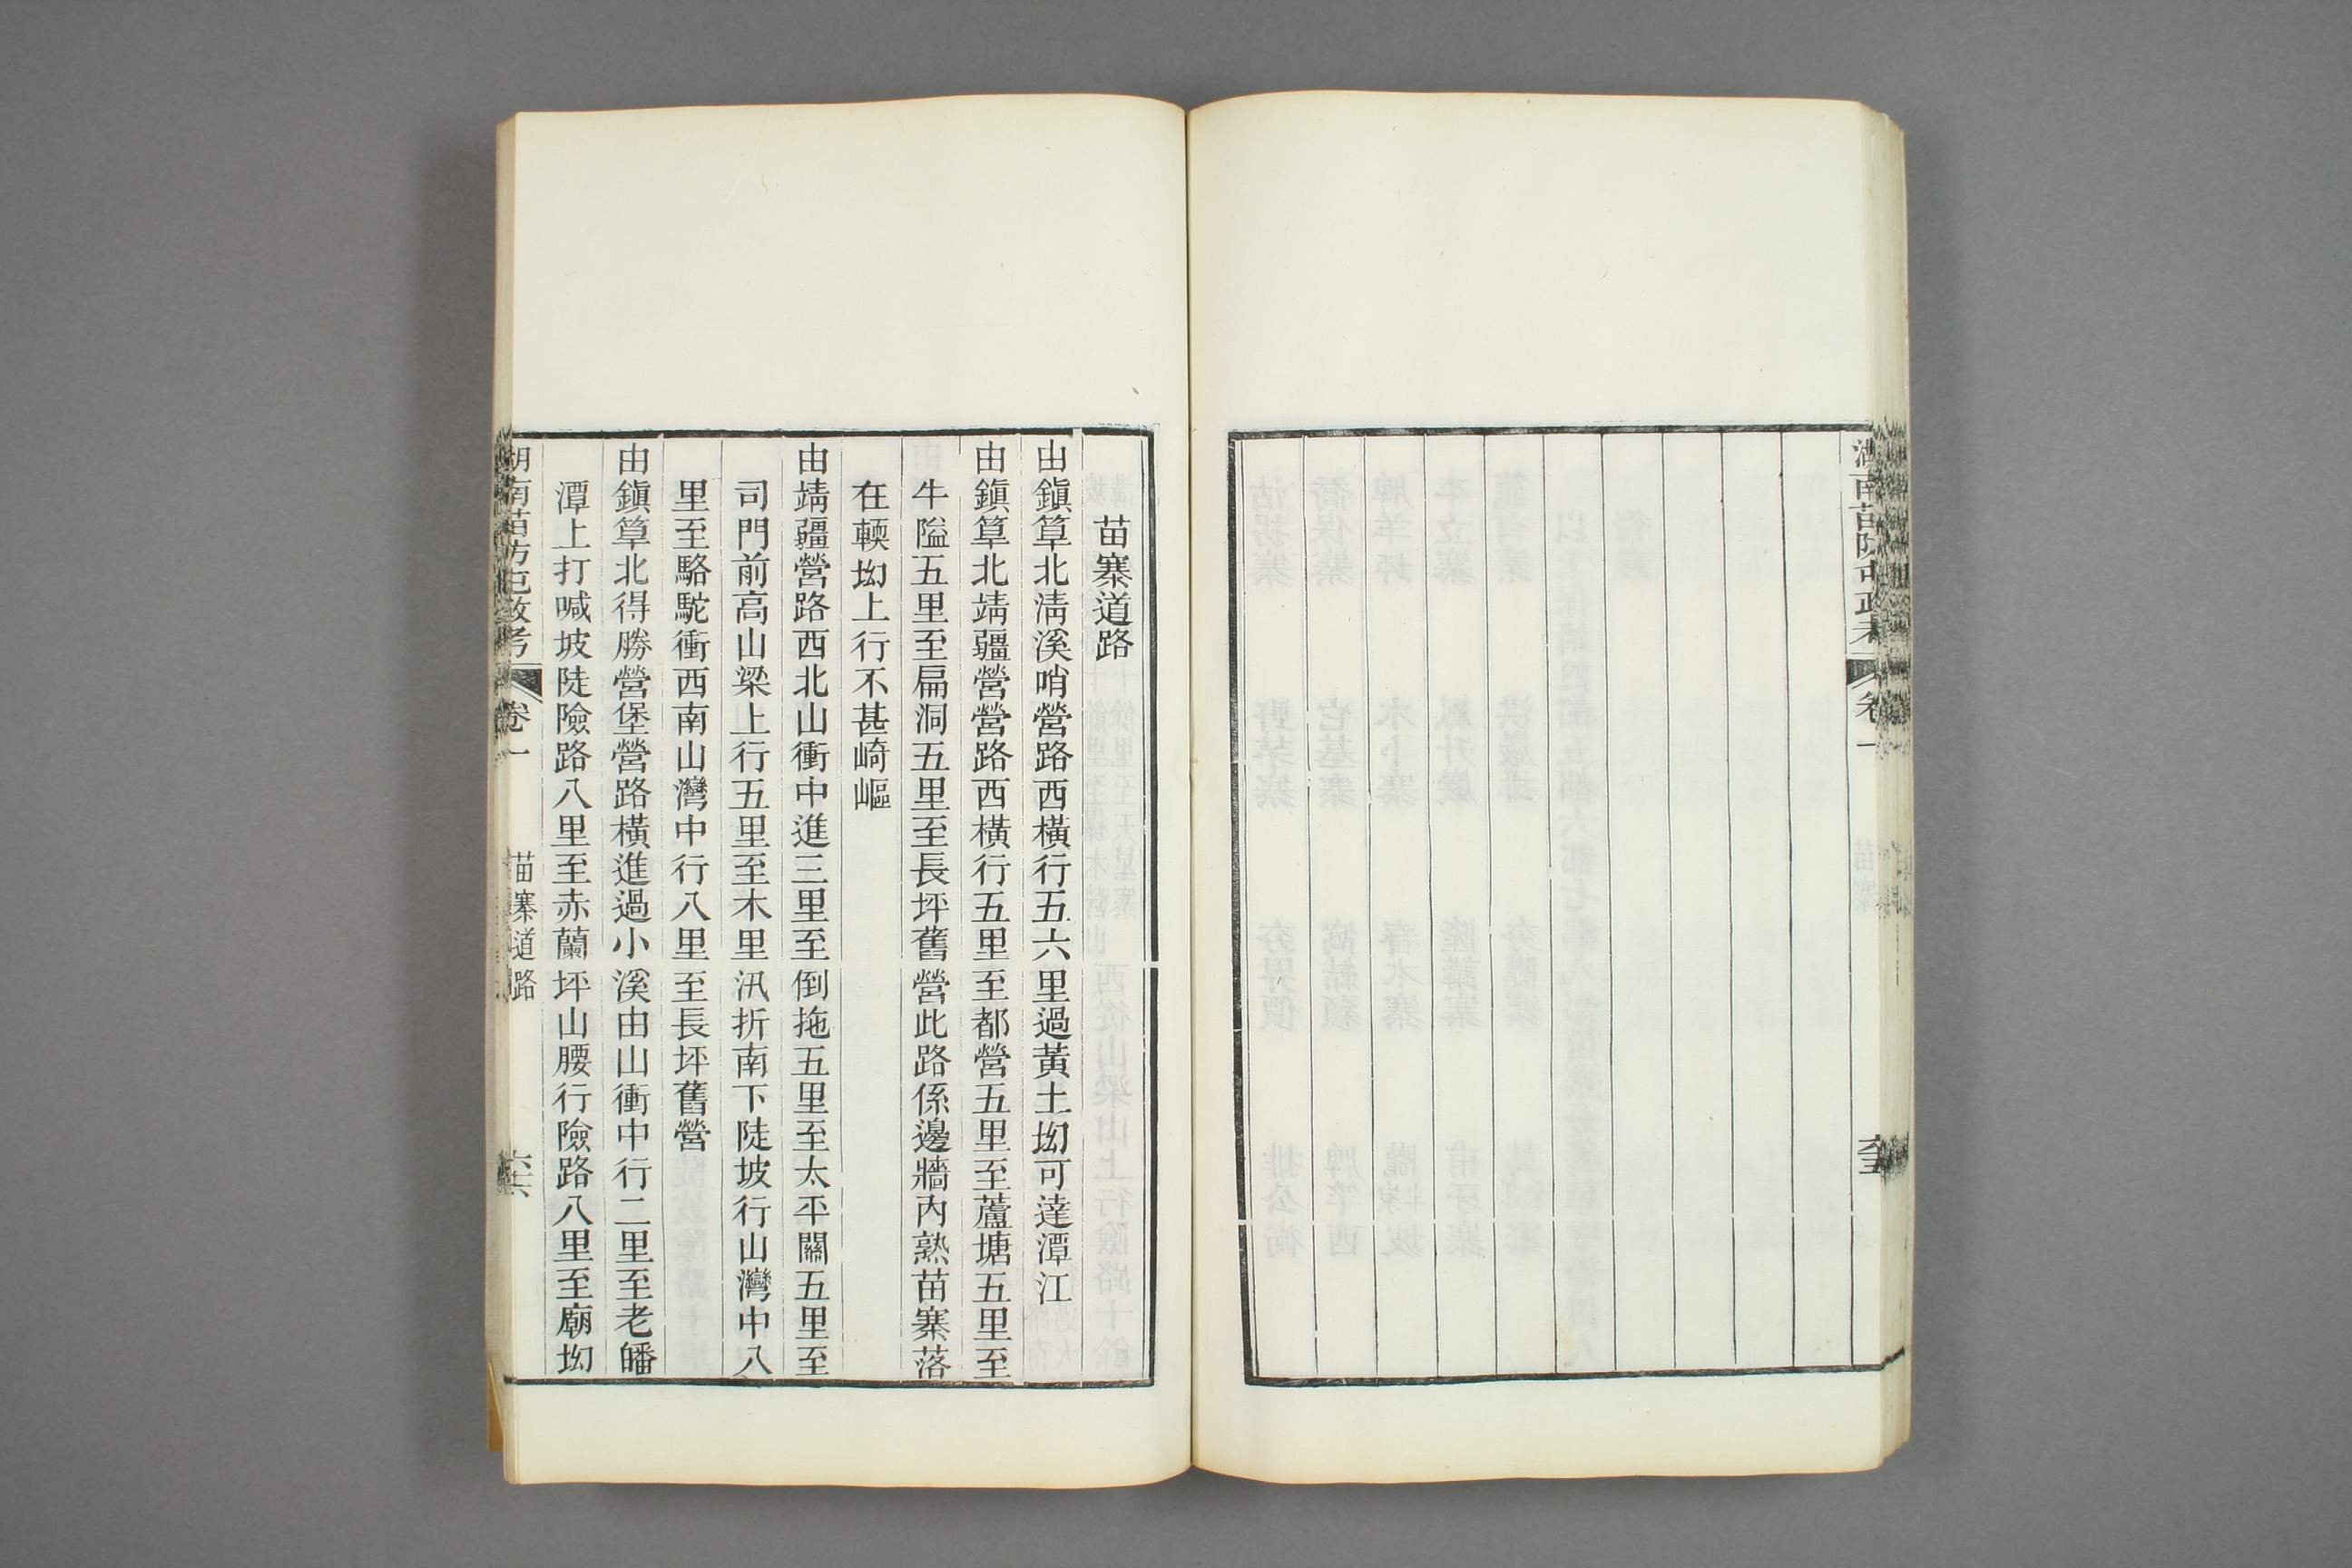 湖南苗防屯政考
卷一
苗寨
六五
苗寨道路
由鎮筸北清溪哨營路西橫行五六里過黃土坳可達潭江
由鎮筸北靖疆營營路西橫行五里至都營五里至蘆塘五里至
牛隘五里至扁洞五里至長坪舊營此路係邊牆內熟苗寨落
在輭坳上行不甚崎嶇
由靖疆營路西北山衝中進三里至倒拖五里至太平關五里至
司門前高山梁上行五里至木里汛折南下陡坡行山灣中八
里至駱駝衝西南山灣中行八里至長坪舊營
由鎮筸北得勝營堡營路橫進過小溪由山衝中行二里至老皤
潭上打喊坡陡險路八里至赤蘭坪山腰行險路八里至廟坳
湖南苗防屯政考
卷一
苗寨道路
六六